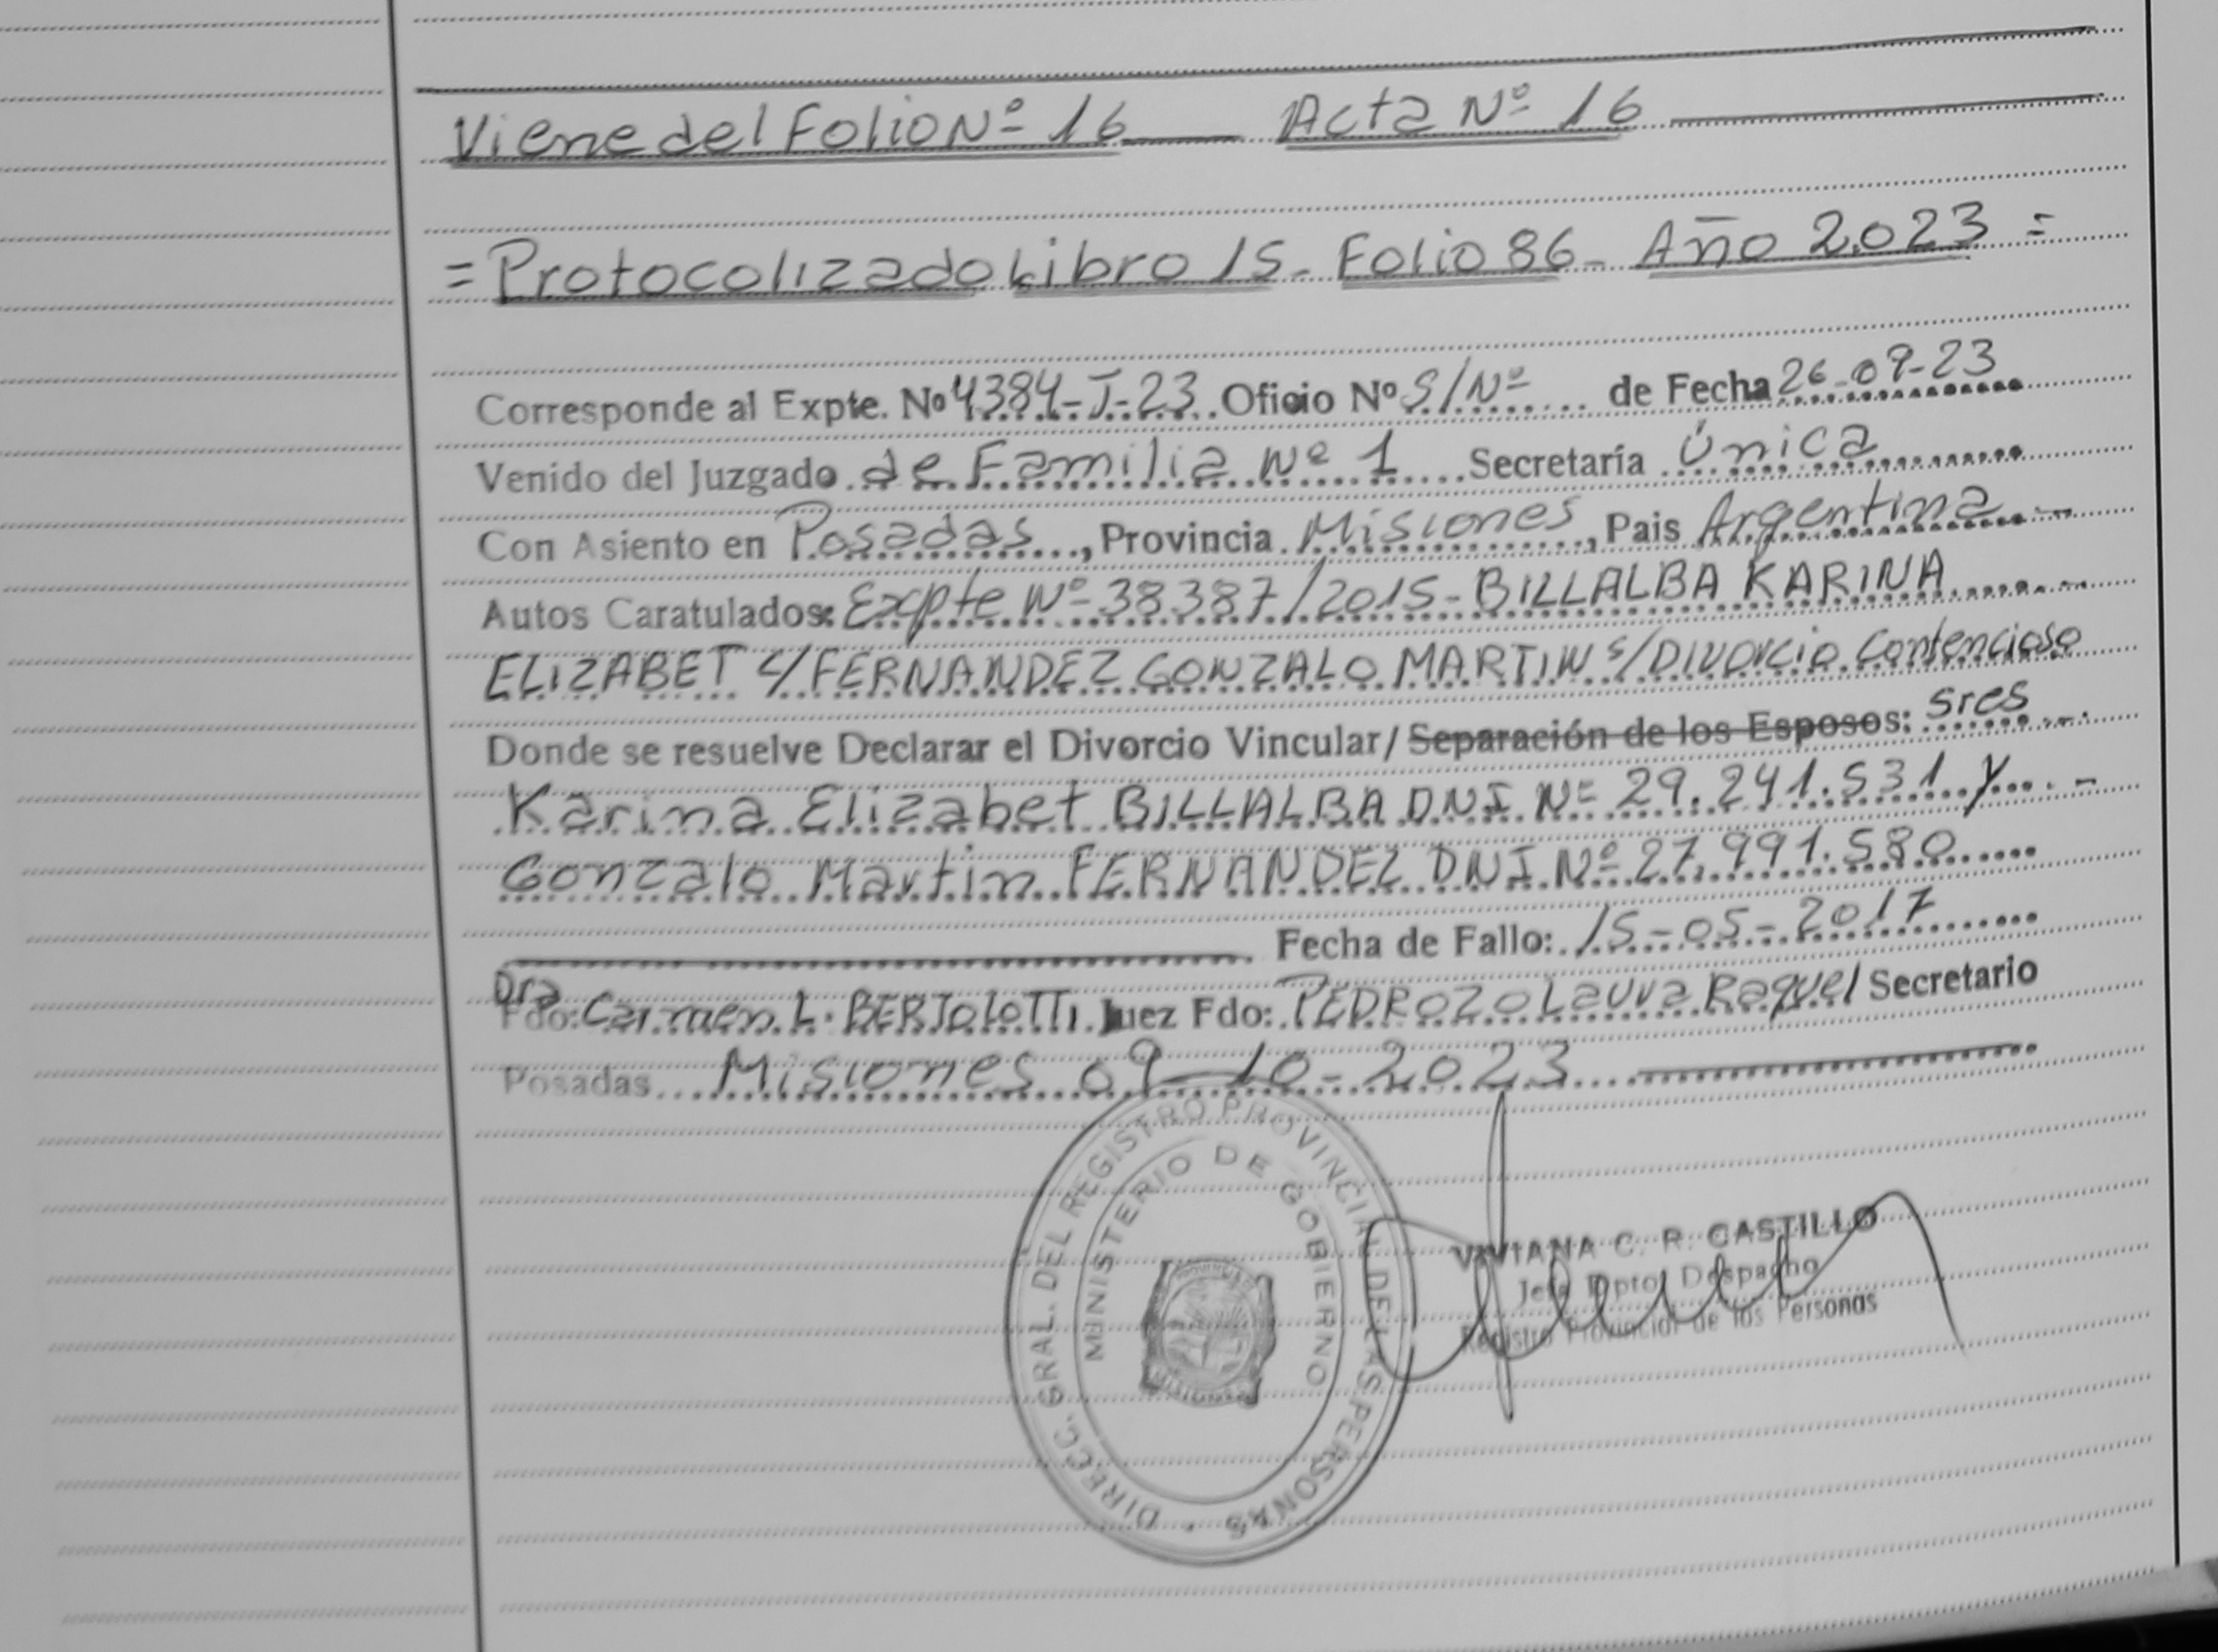 Viene del Folio Nº 16 Acta Nº 16
= Protocolizado Libro 15 - Folio 86 - Año 2.023 =
Corresponde al Expte. Nº 4384-J-23 Oficio Nº S/Nº de Fecha 26-09-23
Venido del Juzgado de Familia Nº 1 Secretaría Única
Con Asiento en Posadas, Provincia Misiones, Pais Argentina
Autos Caratulados: Expte Nº 38387/2015 - BILLALBA KARINA
ELIZABET C/ FERNANDEZ GONZALO MARTIN S/ DIVORCIO Contencioso
Donde se resuelve Declarar el Divorcio Vincular/ Separación de los Esposos: Sres
Karina Elizabet BILLALBA DNI Nº 29.241.531 y
Gonzalo Martin FERNANDEZ DNI Nº 27.991.580
Fecha de Fallo: 15-05-2017
Dra
Fdo: Carmen L. BERTOLOTTI Juez Fdo: PEDROZO Laura Raquel Secretario
Posadas Misiones 09-10-2023
DIRECC. GRAL. DEL REGISTRO PROVINCIAL DE LAS PERSONAS
MINISTERIO DE GOBIERNO
MISIONES
VIVIANA C. R. CASTILLO
Jefe Dpto. Despacho
Registro Provincial de las Personas